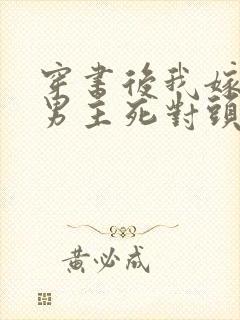 穿書後我嫁
男主死對頭
黃必成